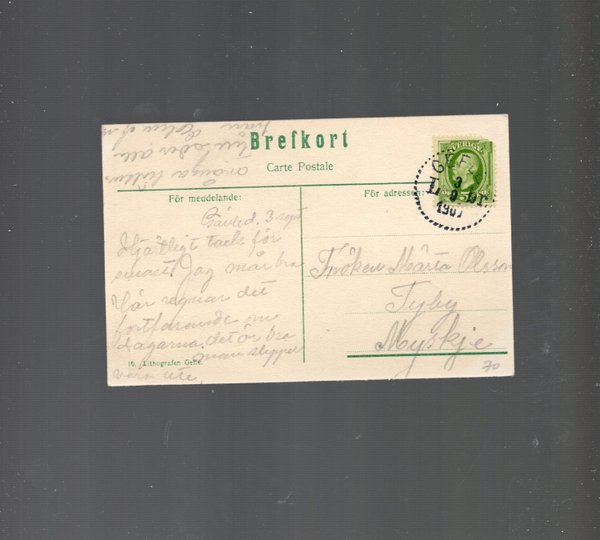 Brefkort
Carte Postale
För meddelande:
För adressen:
SVERIGE
GEFLE
3
9
1907
Gävle d. 3 sept
Hjärtligt tack för
senast! Jag mår bra
Här regnar det
fortfarande om
dagarna, det är bra
man slipper
vara ute,
många hälsn
till eder alla
från
Fröken Märta Olsson
Tyby
Myskje
10. Lithografen Gefle.
70